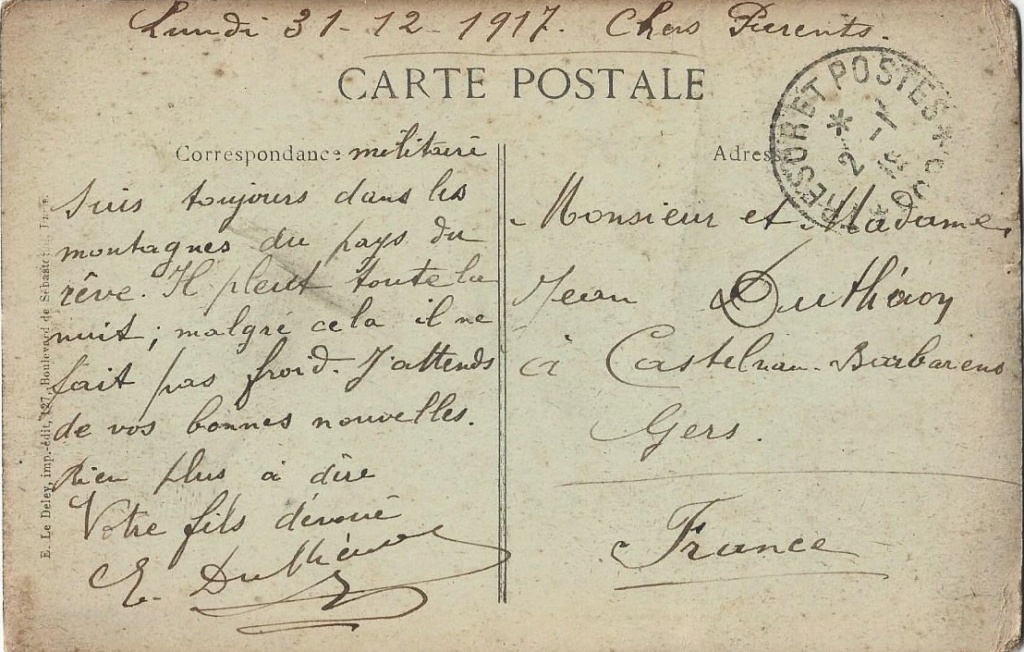 Lundi 31-12-1917. Chers Parents.
CARTE POSTALE
Correspondance militaire
Suis toujours dans les
montagnes du pays du
rêve. Il pleut toute la
nuit; malgré cela il ne
fait pas froid. J'attends
de vos bonnes nouvelles.
Rien plus à dire
Votre fils dévoué
E.
Adresse
Monsieur et Madame
Jean
à Castelnau-Barbarens
Gers.
France
TRESOR ET POSTES
2 -1
E. Le Deley, imp.-édit., 127, Boulevard de Sébastopol, Paris